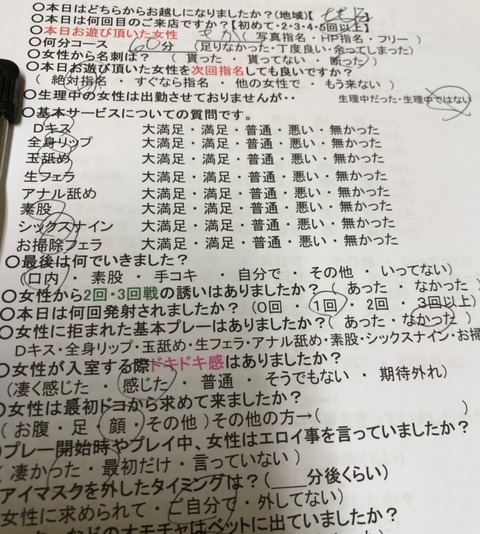 ○本日はどちらからお越しになりましたか?(地域)【
○本日は何回目のご来店ですか?【初めて・2・3・4・5回以上】
○本日お遊び頂いた女性 (写真指名・HP指名・フリー)
○何分コース 60分 (足りなかった・丁度良い・余ってしまった)
○女性から名刺は? (貰った・貰ってない・断った)
○本日お遊び頂いた女性を次回指名しても良いですか?
(絶対指名・すぐなら指名・他の女性で・もう来ない)
○生理中の女性は出勤させておりませんが‥ 生理中だった・生理中ではない
○基本サービスについての質問です。
Dキス 大満足・満足・普通・悪い・無かった
全身リップ 大満足・満足・普通・悪い・無かった
玉舐め 大満足・満足・普通・悪い・無かった
生フェラ 大満足・満足・普通・悪い・無かった
アナル舐め 大満足・満足・普通・悪い・無かった
素股 大満足・満足・普通・悪い・無かった
シックスナイン 大満足・満足・普通・悪い・無かった
お掃除フェラ 大満足・満足・普通・悪い・無かった
○最後は何でいきました?
(口内・素股・手コキ・自分で・その他・いってない)
○女性から2回・3回戦の誘いはありましたか?(あった・なかった)
○本日は何回発射されましたか?(0回・1回・2回・3回以上)
○女性に拒まれた基本プレーはありましたか?(あった・なかった)
Dキス・全身リップ・玉舐め・生フェラ・アナル舐め・素股・シックスナイン・お掃
○女性が入室する際ドキドキ感はありましたか?
(凄く感じた・感じた・普通・そうでもない・期待外れ)
○女性は最初ドコから求めて来ましたか?
(お腹・足・顔・その他)その他の方→( )
○プレー開始時やプレイ中、女性はエロイ事を言っていましたか?
(凄かった・最初だけ・言っていない)
アイマスクを外したタイミングは?(____分後くらい)
女性に求められて・ご自分で・外してない)
などのオモチャはベットに出ていましたか?